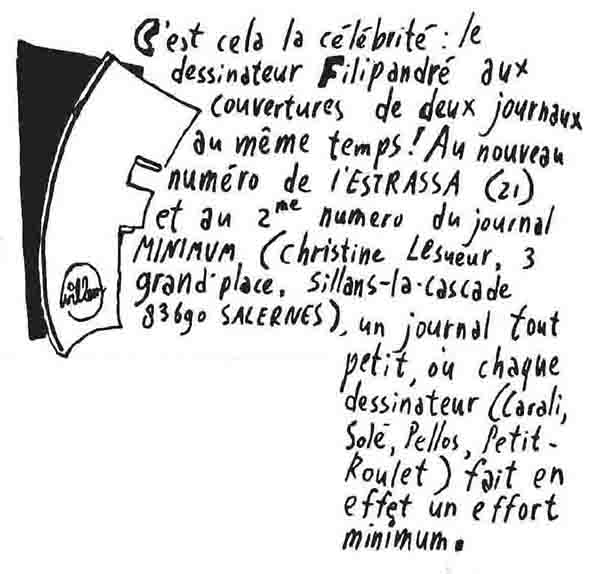 C'est cela la célébrité : le
dessinateur Filipandré aux
couvertures de deux journaux
au même temps! Au nouveau
numéro de l'ESTRASSA (21)
et au 2me numero du journal
MINIMUM, (Christine Lesueur, 3
grand-place, Sillans-la-cascade
83690 SALERNES), un journal tout
petit, où chaque
dessinateur (Carali,
Solé, Pellos, Petit-
Roulet) fait en
effet un effort
minimum.
willem